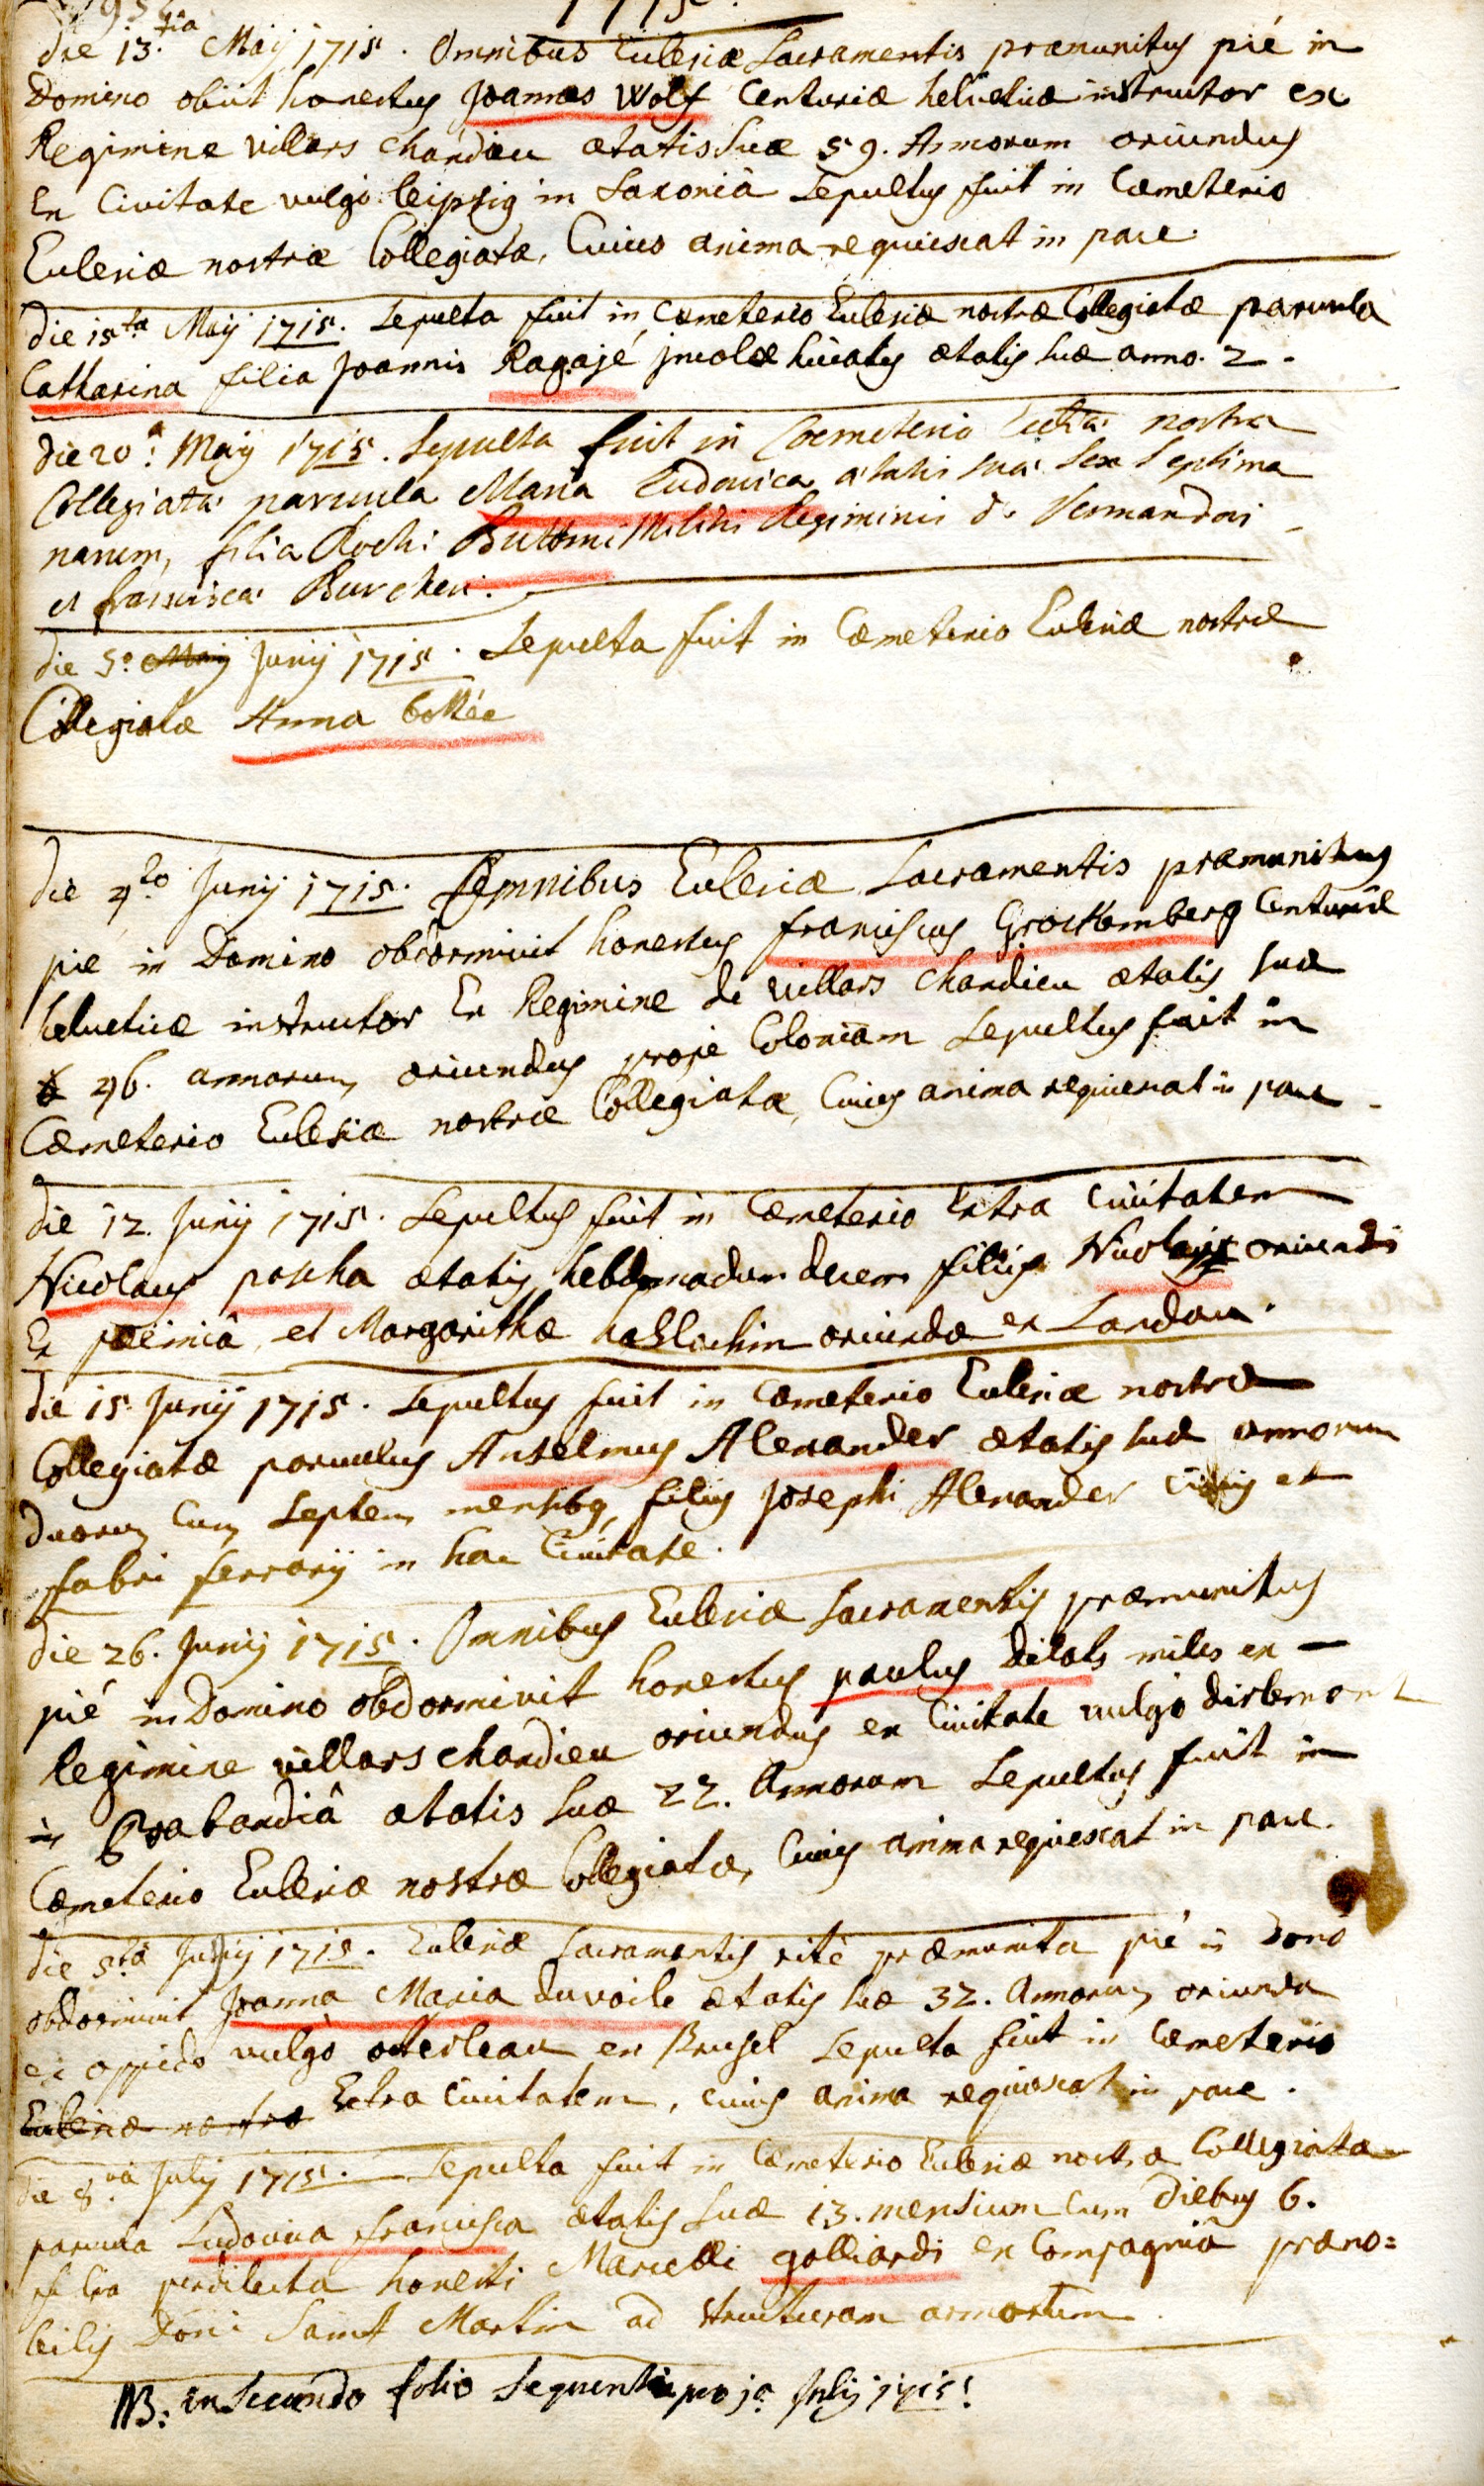 1715.
die 13.tia Maij 1715. Omnibus Eclesiæ Sacramentis præmunitus pié in
Domino obiit honestus Joannes Wolf Centuriæ helveticæ instructor ex
Regimine villars chandieu ætatis suæ 59. Annorum oriundus
Ex Civitate vulgò leipsig in Saxoniâ Sepultus fuit in Cæmeterio
Eclesiæ nostræ Collegiatæ, Cuius anima requiescat in pace.
die 15ta Maij 1715. Sepulta fuit in Cæmeterio Eclesiæ nostræ Collegiatæ parvula
Catharina filia Joannis Ragajé jncolæ hicatis ætatis suæ anno. 2.
die 20.a Maij 1715. Sepulta fuit in Coemeterio nostra
Collegiata parvula Maria Ludovica ætatis sua Sex Septima
narum, filia Rochi Buttomi Militis Regiminis de Vermandois
et francisca Burcheri.
die 5.o Maij Junij 1715. Sepulta fuit in Cæmeterio Eclesiæ nostræ
Collegiatæ Anna bottée
die 4.to Junij 1715. Omnibus Eclesiæ Sacramentis præmunitus
pie in Domino obdormivit honestus franciscus Grockemberg Centuriæ
helveticæ instructor Ex Regimine de villars chandieu ætatis suæ
46. annorum oriundus prope Coloniam Sepultus fuit in
Cæmeterio Eclesiæ nostræ Collegiatæ, Cuius anima requiescat in pace.
die 12. Junij 1715. Sepultus fuit in Cæmeterio Extra Civitatem
Nicolaus pascha ætatis hebdomadum decem filius Nicolai oriundi
Ex et Margarithæ haßlochin oriundæ ex Landau.
die 15. Junij 1715. Sepultus fuit in Cæmeterio Eclesiæ nostræ
Collegiatæ parvulus Anselmus Alexander ætatis suæ annorum
duorum Cum Septem mensibq, filius Josephi Alexander Civis et
fabri ferrarij in hac Civitate.
die 26. Junij 1715. Omnibus Eclesiæ Sacramentis præmunitus
pié in Domino obdormivit honestus paulus delots miles ex
Regimine villars chandieu oriundus ex Civitate vulgò dirlemont
in Brabandiâ ætatis suæ 22. Annorum Sepultus fuit in
Cæmeterio Eclesiæ nostræ Collegiatæ, Cuius anima requiescat in pace.
die 5ta Julij 1715. Eclesiæ Sacramentis rité præmunita pié in Domo
obdormivit Joanna Maria duvoile ætatis suæ 32. Annorum oriunda
ex oppido vulgò otterleau ex Brusel Sepulta fuit in Cæmeterio
Eclesiæ nostræ Extra Civitatem, cuius anima requiescat in pace.
die 8.va Julij 1715. Sepulta fuit in Cæmeterio Eclesiæ nostræ Collegiatæ
parvula Ludovica francisca ætatis suæ 13. mensium Cum diebus 6.
filia perdilecta honesti Marcelli galliardi ex Compagniâ præno=
bilis Domi Saint Martin ad structuram armorum.
NB: in Secundo folio Sequenti pro ja Julij 1715!